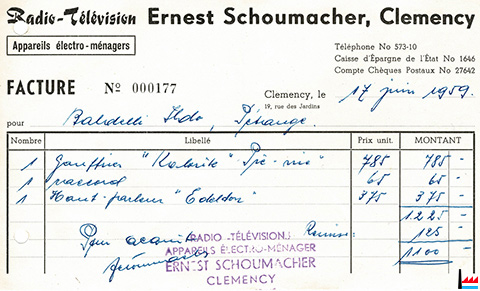 Radio-Télévision Ernest Schoumacher, Clemency
Appareils électro-ménagers
Téléphone No 573-10
Caisse d'Épargne de l'État No 1646
Compte Chèques Postaux No 27642
FACTURE No 000177
Clemency, le 17 juin 1959
19, rue des Jardins
pour Pétange
Nombre Libellé Prix unit. MONTANT
1 Gauffrier "Kalorik" 785 785 -
1 raccord 65 65 -
1 Haut-parleur "Edelton" 375 375 -
1225 -
Remise 125 -
1100 -
Pour acquit
RADIO-TÉLÉVISION
APPAREILS ÉLECTRO-MÉNAGER
ERNEST SCHOUMACHER
CLEMENCY
Schoumacher